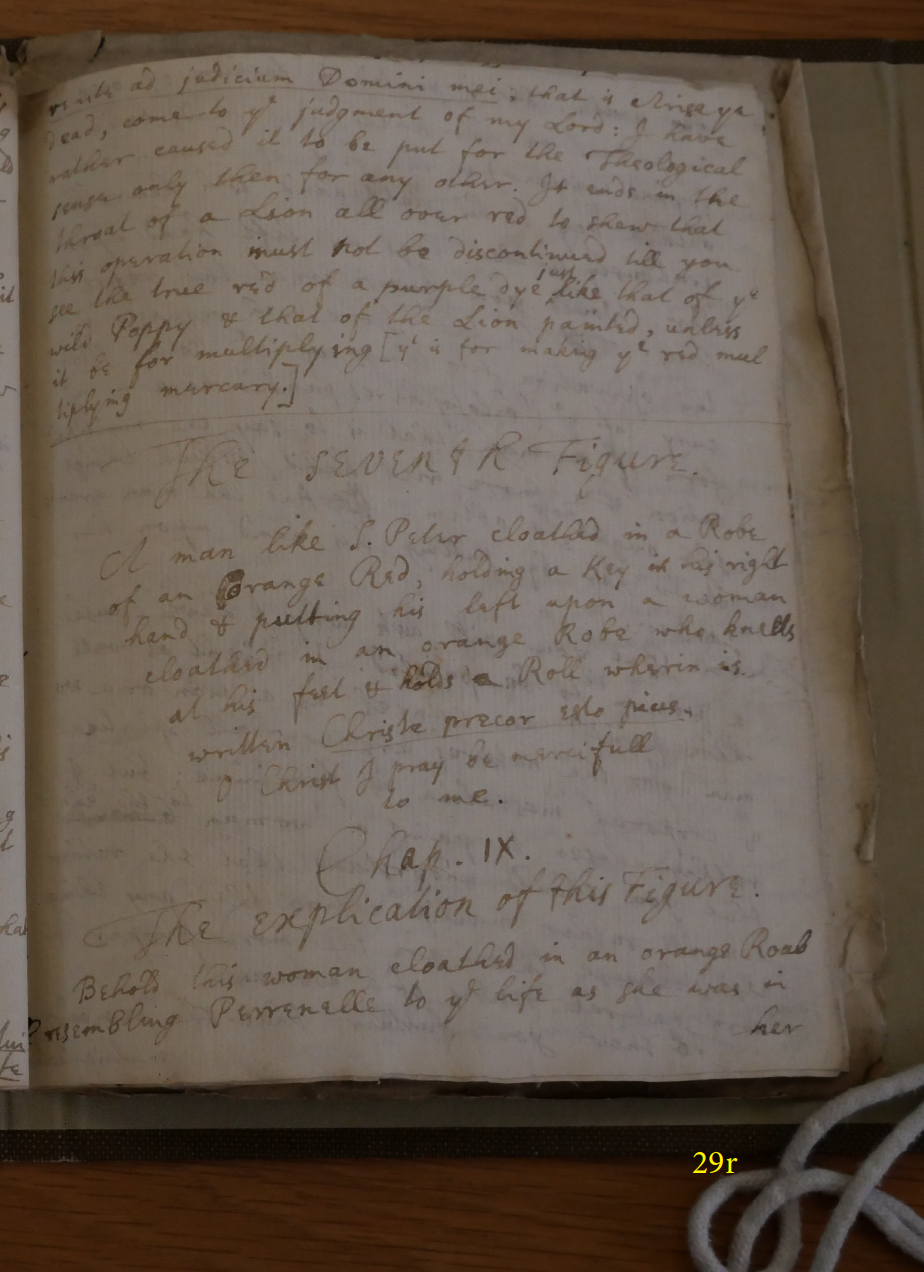 venite ad judicium Domini mei, that is Arise ye
dead, come to ye judgment of my Lord: I have
rather caused it to be put for the Theological
sense only then for any other. It ends in the
throat of a Lion all over red to shew that
this operation must not be discontinued till you
see the true red of a purple dye just like that of ye
wild Poppy & that of the Lion painted, unless
it be for multiplying [yt is for making ye red mul
tiplying mercury.]
The SEVENth Figure.
A man like S. Peter cloathed in a Robe
of an Orange Red, holding a Key in his right
hand & putting his left upon a woman
cloathed in an orange Robe who kneels
at his feet & holds a Roll wherin is
written Christe precor esto pius.
O Christ I pray be mercifull
to me.
Chap. IX.
The explication of this Figure.
Behold this woman cloathed in an orange Roab
resembling Perrenelle to ye life as she was in
her
29r